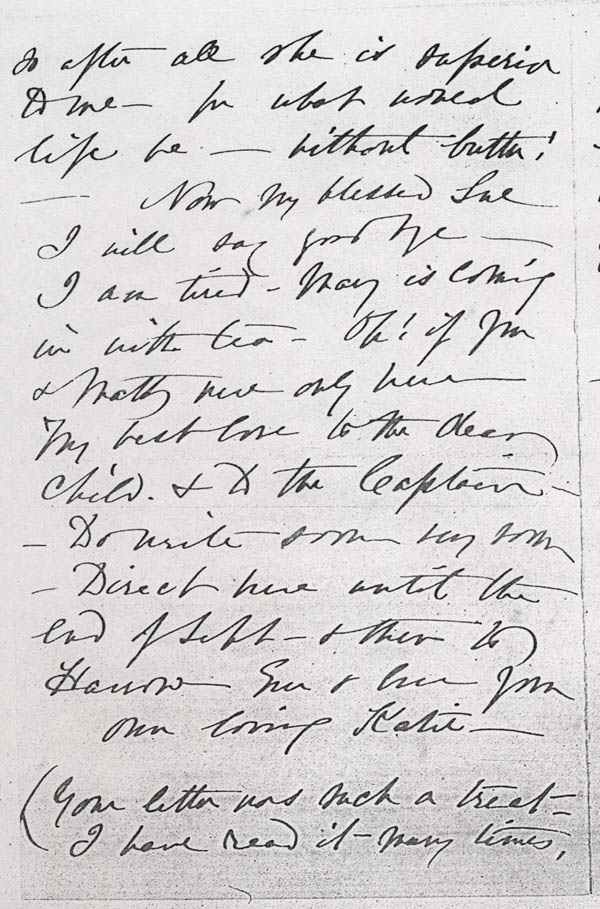 so after all she is superior
to me – for what would
life be – without butter!
— Now my blessed Sue
I will say good bye –
I am tired – Mary is coming
in with tea – Oh! if you
& Matty were only here –
My best love to the dear
Child. & to the Captain –
– Do write soon very soon
– Direct here until the
end of Sept – & then to
Harrow Ever & ever your
own loving Katie –
(Your letter was such a treat –
I have read it many times,